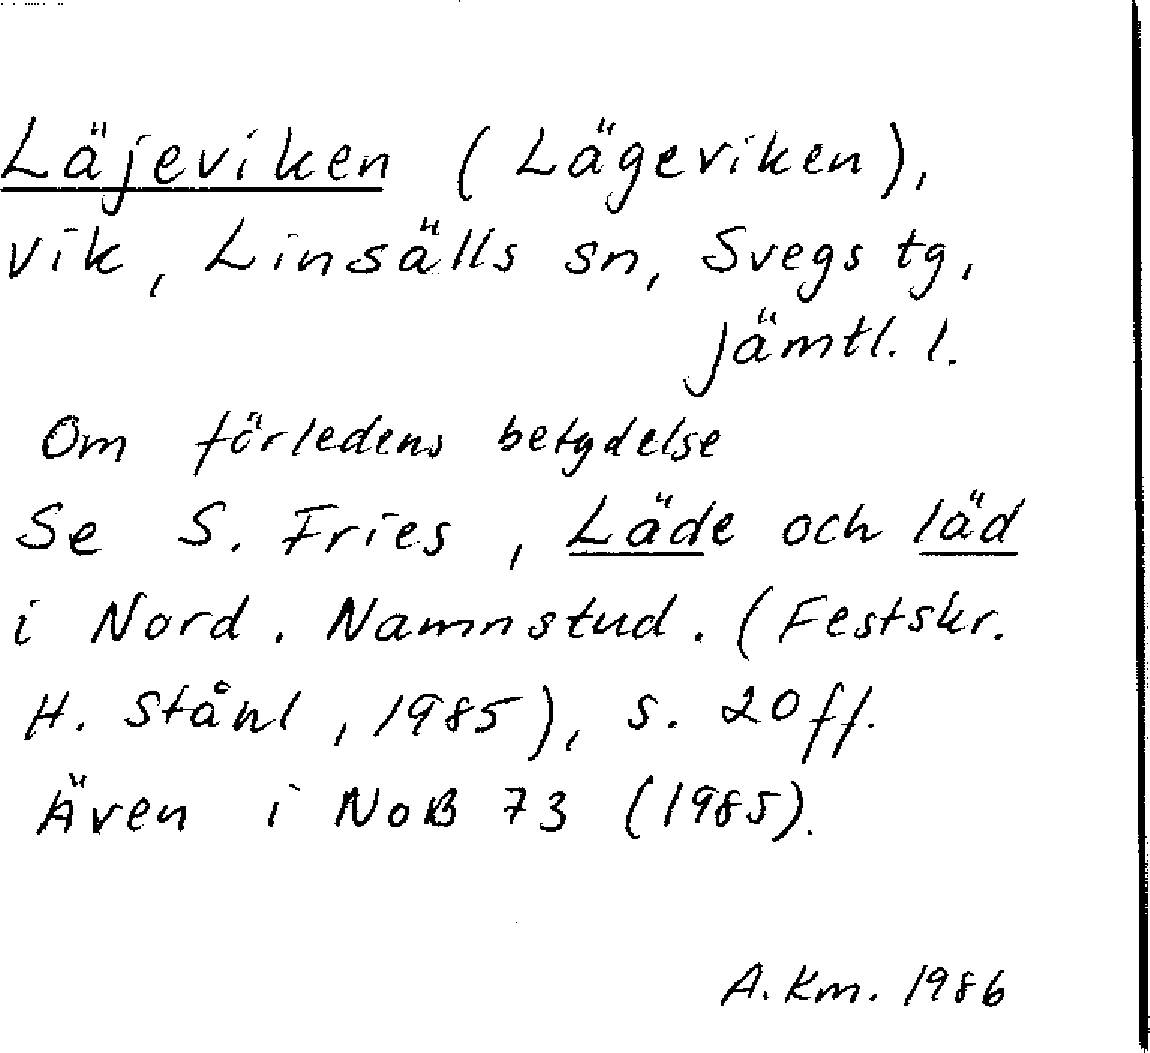 Läjeviken (Lägeviken),
vik, Linsälls sn, Svegs tg,
Jämtl. l.
Om förledens betydelse
Se S. Fries, Läde och läd
i Nord. Namnstud. (Festskr.
H. Ståhl, 1985), s. 20 ff.
Även i NoB 73 (1985).
A. Km. 1986